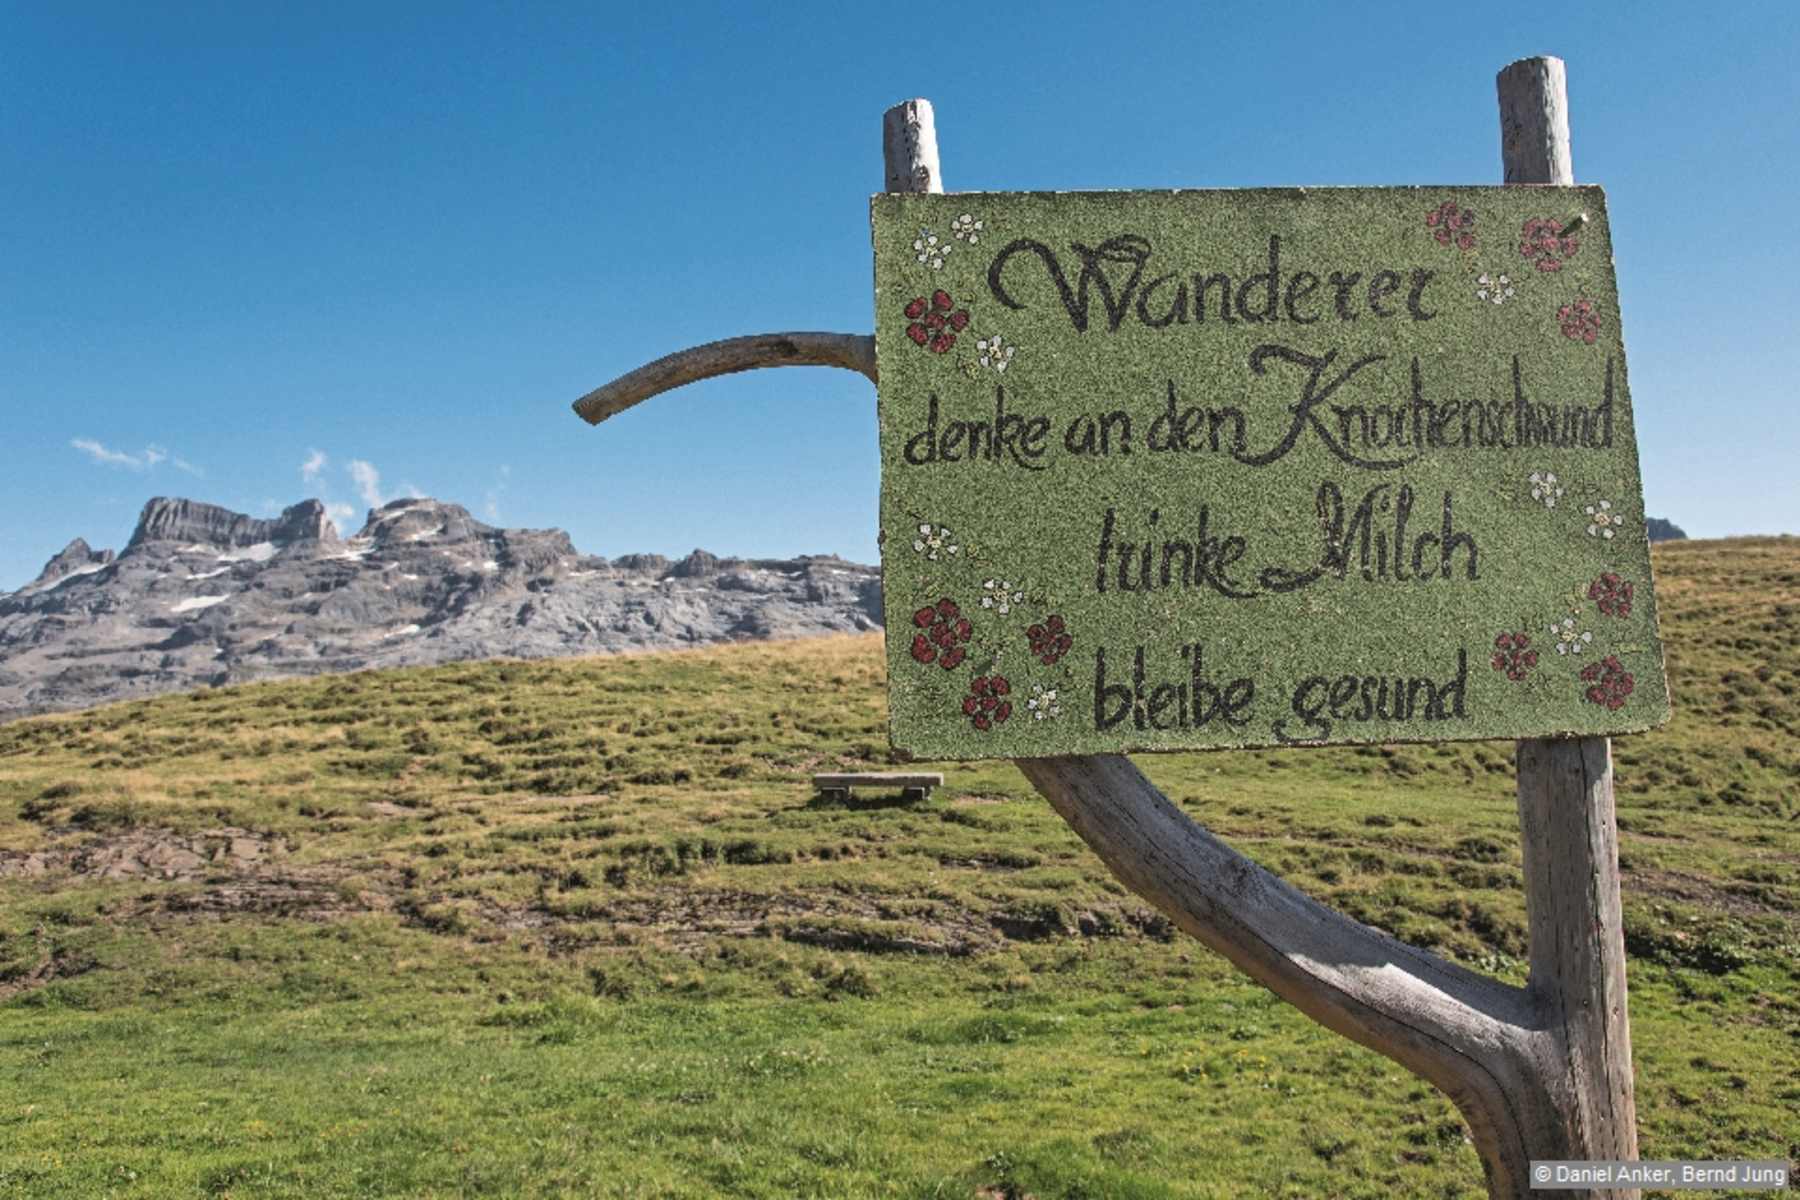 Wanderer
denke an den Knochenschwund
trinke Milch
bleibe gesund
© Daniel Anker, Bernd Jung